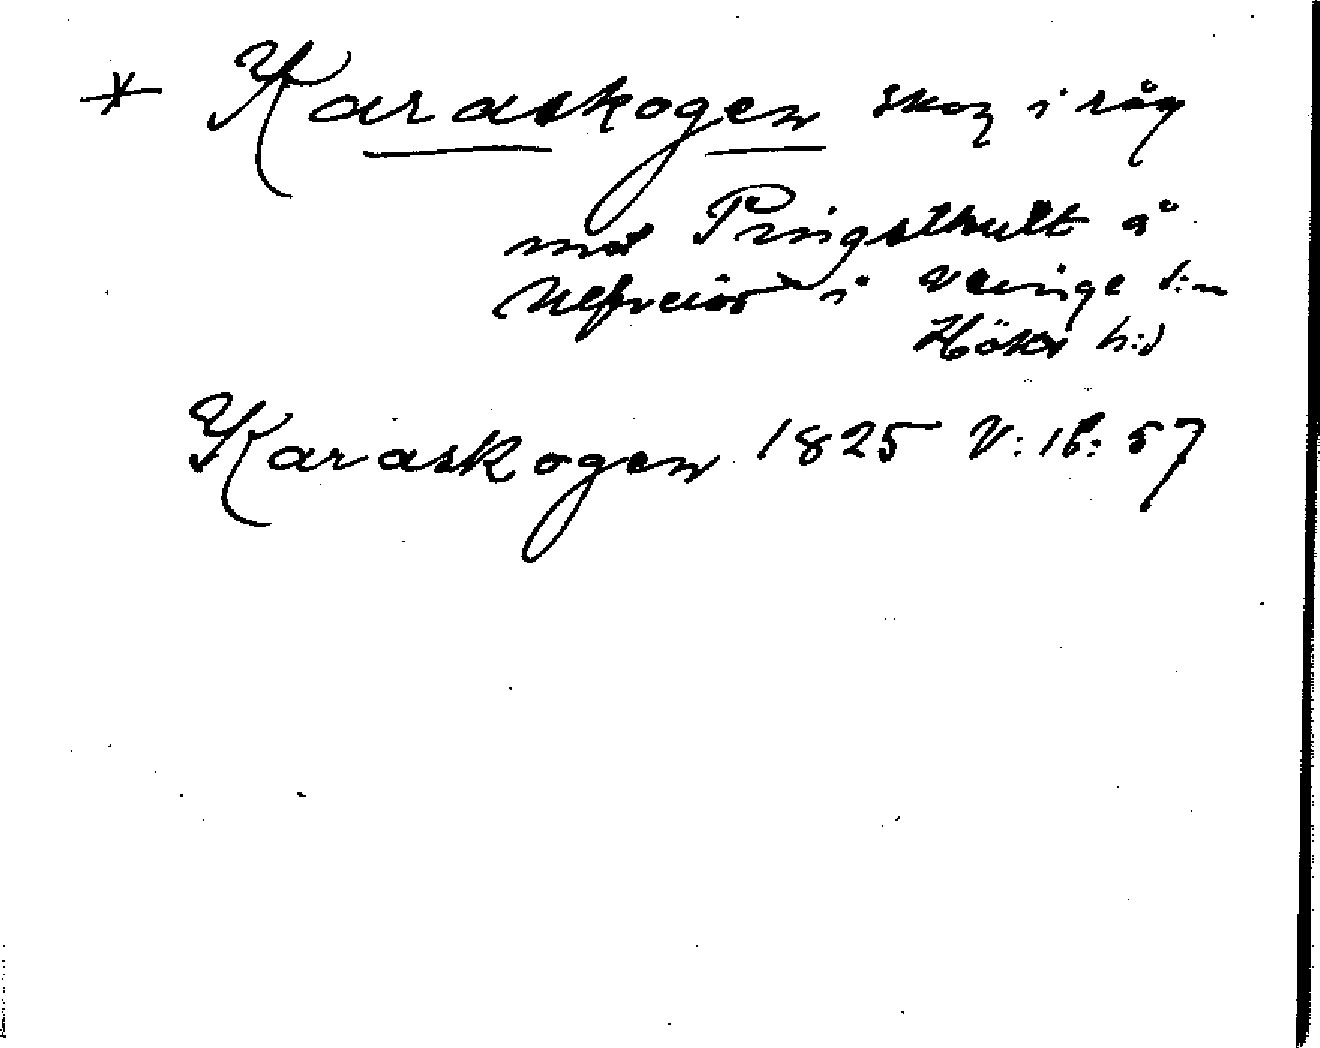 * Karaskogen skog i råg
mot Pringsthult å
i Veinge s:n
Höks h:d
Karaskogen 1825 V: 16: 57